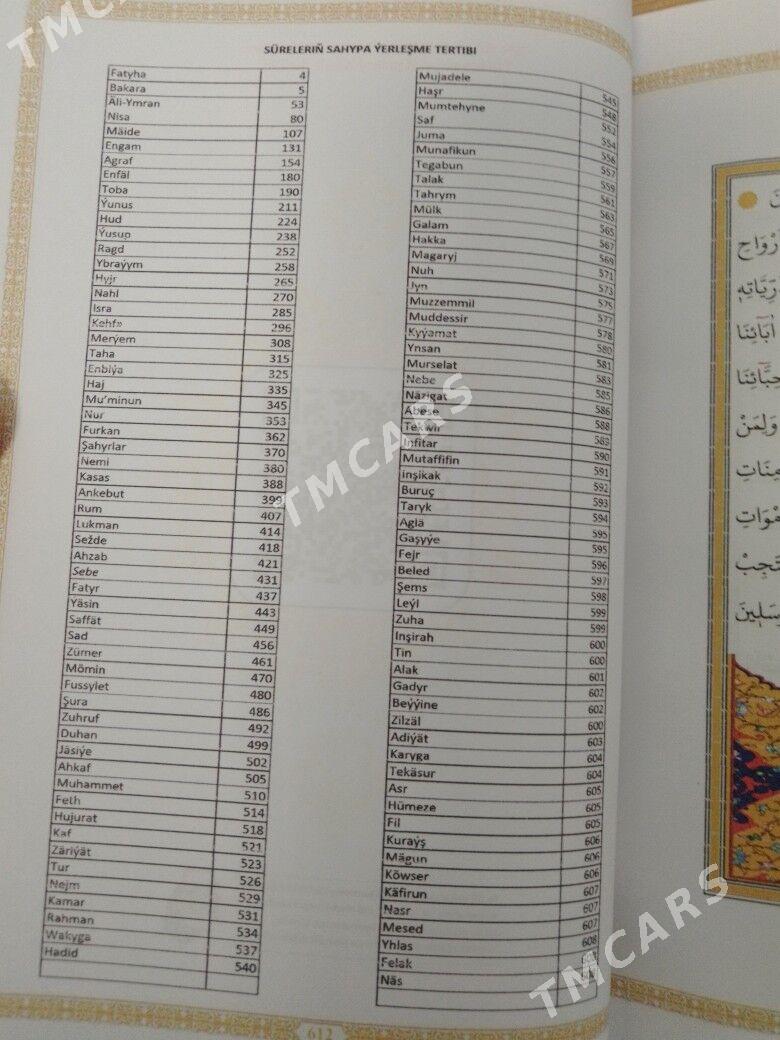 SÜRELERIŇ SAHYPA ÝERLEŞME TERTIBI
Fatyha 4
Bakara 5
Äli-Ymran 53
Nisa 80
Mäide 107
Engam 131
Agraf 154
Enfäl 180
Toba 190
Ýunus 211
Hud 224
Ýusup 238
Ragd 252
Ybraýym 258
Hyjr 265
Nahl 270
Isra 285
Kehf» 296
Merýem 308
Taha 315
Enbiýa 325
Haj 335
Mu'minun 345
Nur 353
Furkan 362
Şahyrlar 370
Nemi 380
Kasas 388
Ankebut 399
Rum 407
Lukman 414
Sežde 418
Ahzab 421
Sebe 431
Fatyr 437
Ýäsin 443
Saffät 449
Sad 456
Zümer 461
Mömin 470
Fussylet 480
Şura 486
Zuhruf 492
Duhan 499
Jäsiýe 502
Ahkaf 505
Muhammet 510
Feth 514
Hujurat 518
Kaf 521
Zäriýät 523
Tur 526
Nejm 529
Kamar 531
Rahman 534
Wakyga 537
Hadid 540
Mujadele 545
Haşr 548
Mumtehyne 552
Saf 554
Juma 556
Munafikun 557
Tegabun 559
Talak 561
Tahrym 563
Mülk 565
Galam 567
Hakka 569
Magaryj 571
Nuh 573
Jyn 575
Muzzemmil 577
Muddessir 578
Kyýamat 580
Ynsan 581
Murselat 583
Nebe 585
Näzigat 586
Abese 588
Tekwir 589
Infitar 590
Mutaffifin 591
inşikak 592
Buruç 593
Taryk 594
Aglä 595
Gaşyýe 595
Fejr 596
Beled 597
Şems 598
Leýl 599
Zuha 599
Inşirah 600
Tin 600
Alak 601
Gadyr 602
Beýýine 602
Zilzäl 600
Adiýät 603
Karyga 604
Tekäsur 604
Asr 605
Hümeze 605
Fil 605
Kuraýş 606
Mägun 606
Köwser 606
Käfirun 607
Nasr 607
Mesed 607
Yhlas 608
Felak
Näs
612
TMCARS
TMCARS
TMCARS
TMCARS